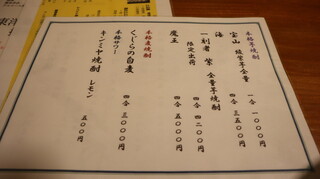 本格芋焼酎
宝山 綾紫芋全量
一合 一〇〇〇円
四合 三五〇〇円
海
一刻者 紫 全量芋焼酎
限定出荷
四合 四二〇〇円
魔王
四合 五〇〇〇円
本格麦焼酎
くじらの自麦
四合 三〇〇〇円
本格サワー
キンミヤ焼酎 レモン
五〇〇円